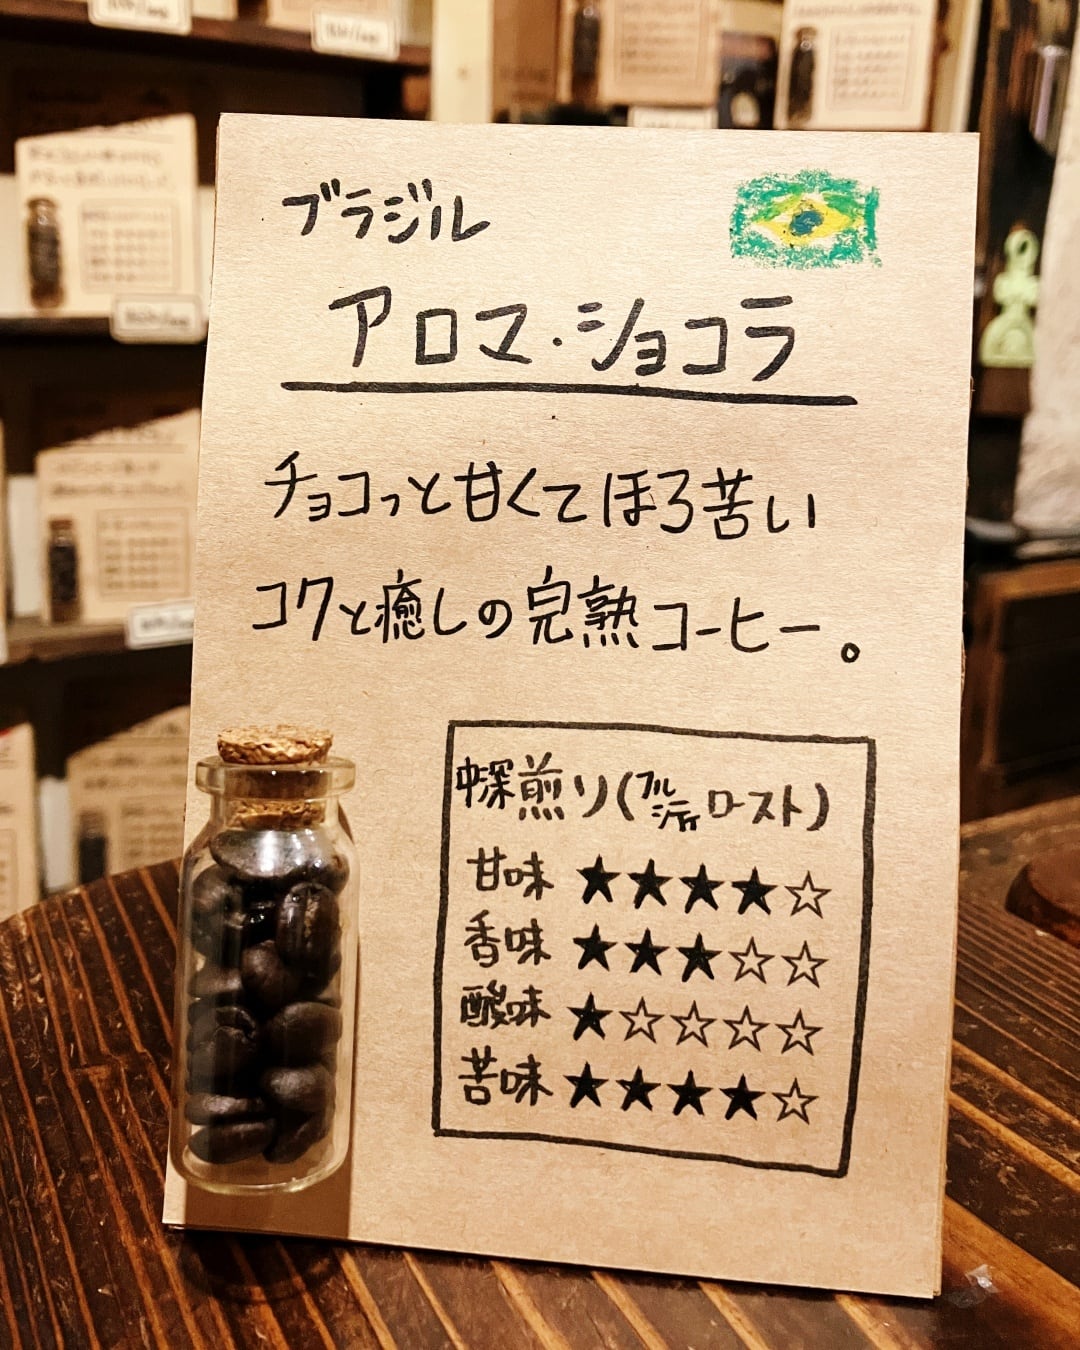 ブラジル
アロマ・ショコラ
チョコっと甘くてほろ苦い
コクと癒しの完熟コーヒー。
中深煎り(フルシティローストト)
甘味 ★★★★☆
香味 ★★★☆☆
酸味 ★☆☆☆☆
苦味 ★★★★☆